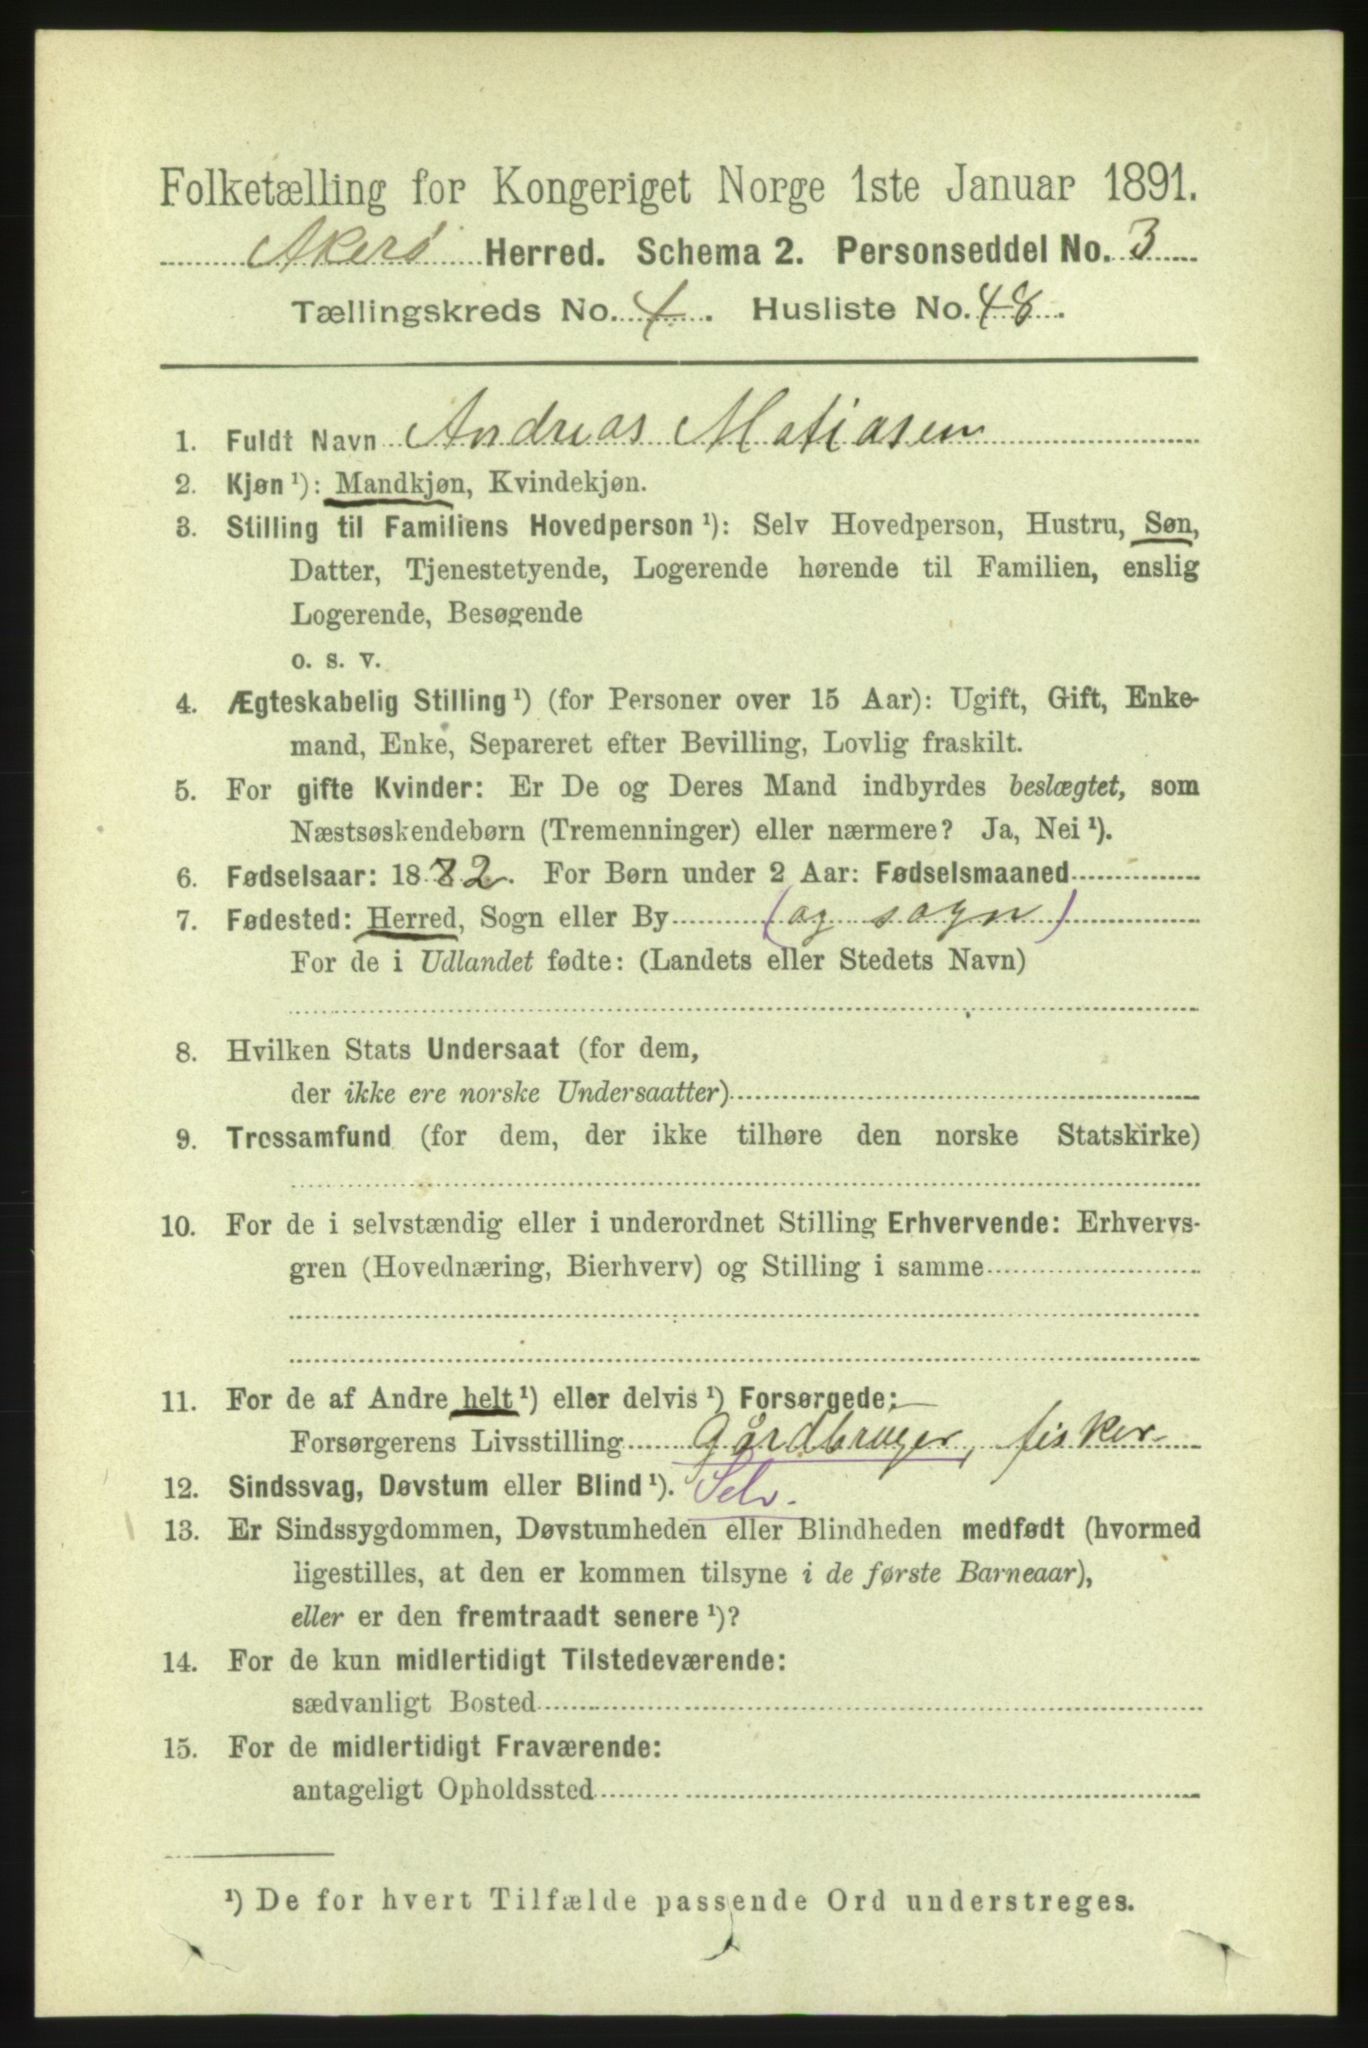 Folketælling for Kongeriget Norge 1ste Januar 1891.
Akerø Herred. Schema 2. Personseddel No. 3
Tællingskreds No. 4. Husliste No. 48.
1. Fuldt Navn Andreas Matiasen
2. Kjøn ¹): Mandkjøn, Kvindekjøn.
3. Stilling til Familiens Hovedperson ¹): Selv Hovedperson, Hustru, Søn,
Datter, Tjenestetyende, Logerende hørende til Familien, enslig
Logerende, Besøgende
o. s. v.
4. Ægteskabelig Stilling ¹) (for Personer over 15 Aar): Ugift, Gift, Enke-
mand, Enke, Separeret efter Bevilling, Lovlig fraskilt.
5. For gifte Kvinder: Er De og Deres Mand indbyrdes beslægtet, som
Næstsøskendebørn (Tremenninger) eller nærmere? Ja, Nei ¹).
6. Fødselsaar: 1882. For Børn under 2 Aar: Fødselsmaaned
7. Fødested: Herred, Sogn eller By (og sogn)
For de i Udlandet fødte: (Landets eller Stedets Navn)
8. Hvilken Stats Undersaat (for dem,
der ikke ere norske Undersaatter)
9. Trossamfund (for dem, der ikke tilhøre den norske Statskirke)
10. For de i selvstændig eller i underordnet Stilling Erhvervende: Erhvervs-
gren (Hovednæring, Bierhverv) og Stilling i samme
11. For de af Andre helt ¹) eller delvis ¹) Forsørgede:
Forsørgerens Livsstilling Gårdbruger, fisker
12. Sindssvag, Døvstum eller Blind ¹). Selv.
13. Er Sindssygdommen, Døvstumheden eller Blindheden medfødt (hvormed
ligestilles, at den er kommen tilsyne i de første Barneaar),
eller er den fremtraadt senere ¹)?
14. For de kun midlertidigt Tilstedeværende:
sædvanligt Bosted
15. For de midlertidigt Fraværende:
antageligt Opholdssted
¹) De for hvert Tilfælde passende Ord understreges.